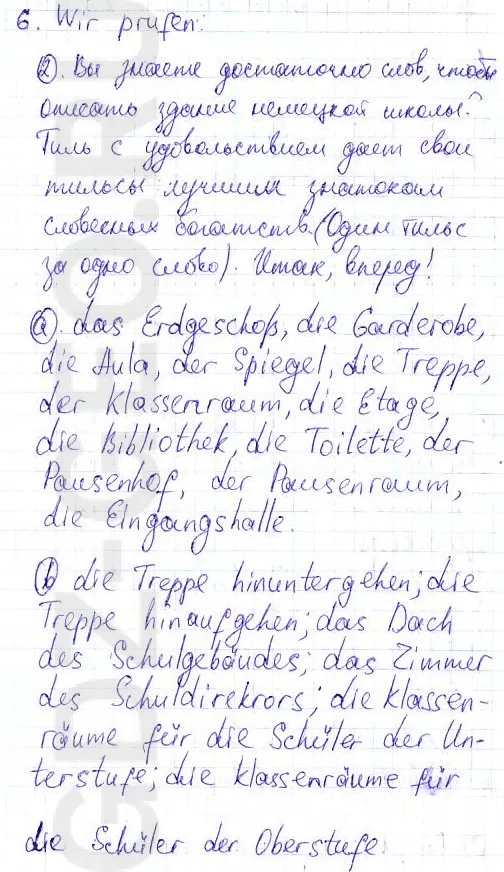 6. Wir prüfen:
②. Вы знаете достаточно слов, чтобы
описать здание немецкой школы?
Тиль с удовольствием дает свои
тильсы лучшим знатокам
словесных богатств. (Один тильс
за одно слово). Итак, вперед!
ⓐ. das Erdgeschoß, die Garderobe,
die Aula, der Spiegel, die Treppe,
der Klassenraum, die Etage,
die Bibliothek, die Toilette, der
Pausenhof, der Pausenraum,
die Eingangshalle.
ⓑ die Treppe hinuntergehen; die
Treppe hinaufgehen; das Dach
des Schulgebäudes; das Zimmer
des Schuldirekrors; die Klassen-
räume für die Schüler der Un-
terstufe; die Klassenräume für
die Schüler der Oberstufe.
GDZ-GEO.RU